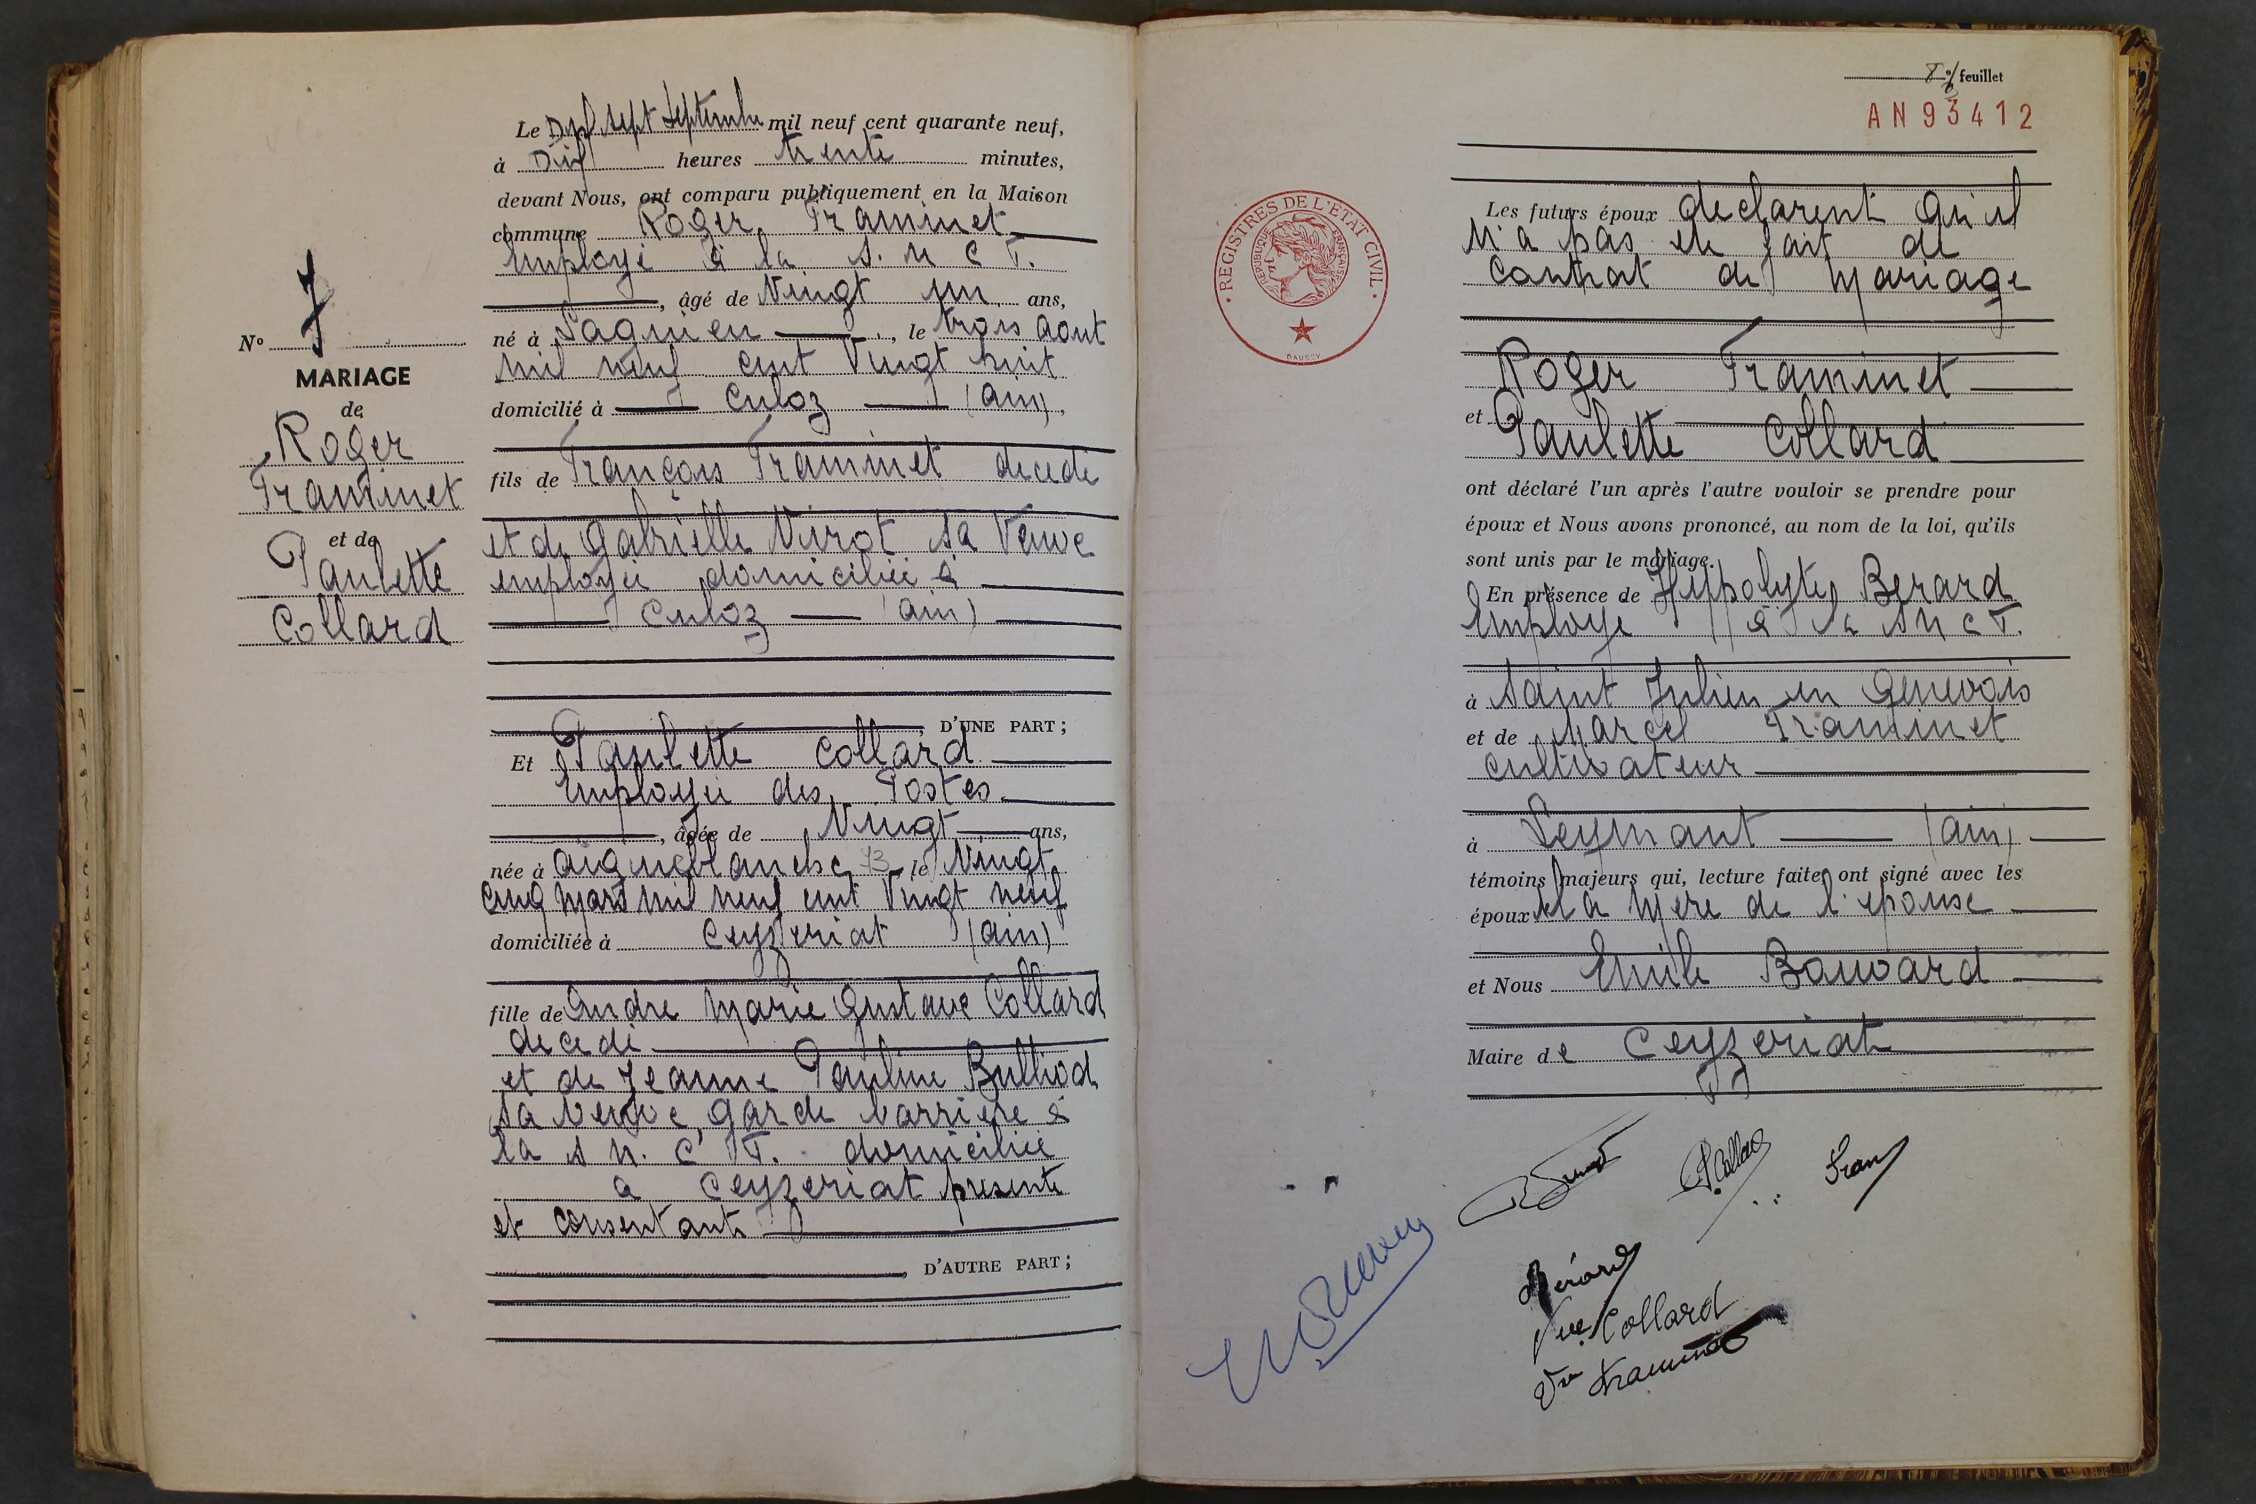 Le Dix sept Septembre mil neuf cent quarante neuf,
à Dix heures trente minutes,
devant Nous, ont comparu publiquement en la Maison
commune Roger Traminet
employé à la S. N C F.
, âgé de Vingt un ans,
né à Lagnieu, le trois Aout
mil neuf cent Vingt huit
domicilié à Culoz (Ain),
fils de François Traminet decedé
et de Gabrielle Virot sa Veuve
employée domiciliée à
Culoz (Ain)
D'UNE PART ;
Nº 7
MARIAGE
de
Roger
Traminet
et de
Paulette
Collard
Et Paulette Collard
employée des Postes
, âgée de Vingt ans,
née à Aigueblanche 73 le Vingt
cinq mars mil neuf cent Vingt neuf
domiciliée à Ceyzeriat (Ain)
fille de Andre Marie Gustave Collard
decedé
et de Jeanne Pauline Bulliod
sa veuve, garde barrière à
la S N. C F. domiciliée
a Ceyzeriat presente
et consentante
D'AUTRE PART ;
feuillet
AN93412
REGISTRES DE L'ÉTAT CIVIL
RÉPUBLIQUE FRANÇAISE
DAUSSY
Les futurs époux declarent qu'il
n'a pas ete fait de
contrat de mariage
Roger Traminet
et Paulette Collard
ont déclaré l'un après l'autre vouloir se prendre pour
époux et Nous avons prononcé, au nom de la loi, qu'ils
sont unis par le mariage.
En présence de Hippolyte Berard
employé à la S N C F.
à Saint Julien en Genevois
et de Marcel Traminet
cultivateur
à Leyment (Ain)
témoins majeurs qui, lecture faite, ont signé avec les
époux et la mère de l'epouse
et Nous Emile Bouvard
Maire de Ceyzeriat
P. Collard
Tram
Bérard
Vve Collard
Vve Traminet